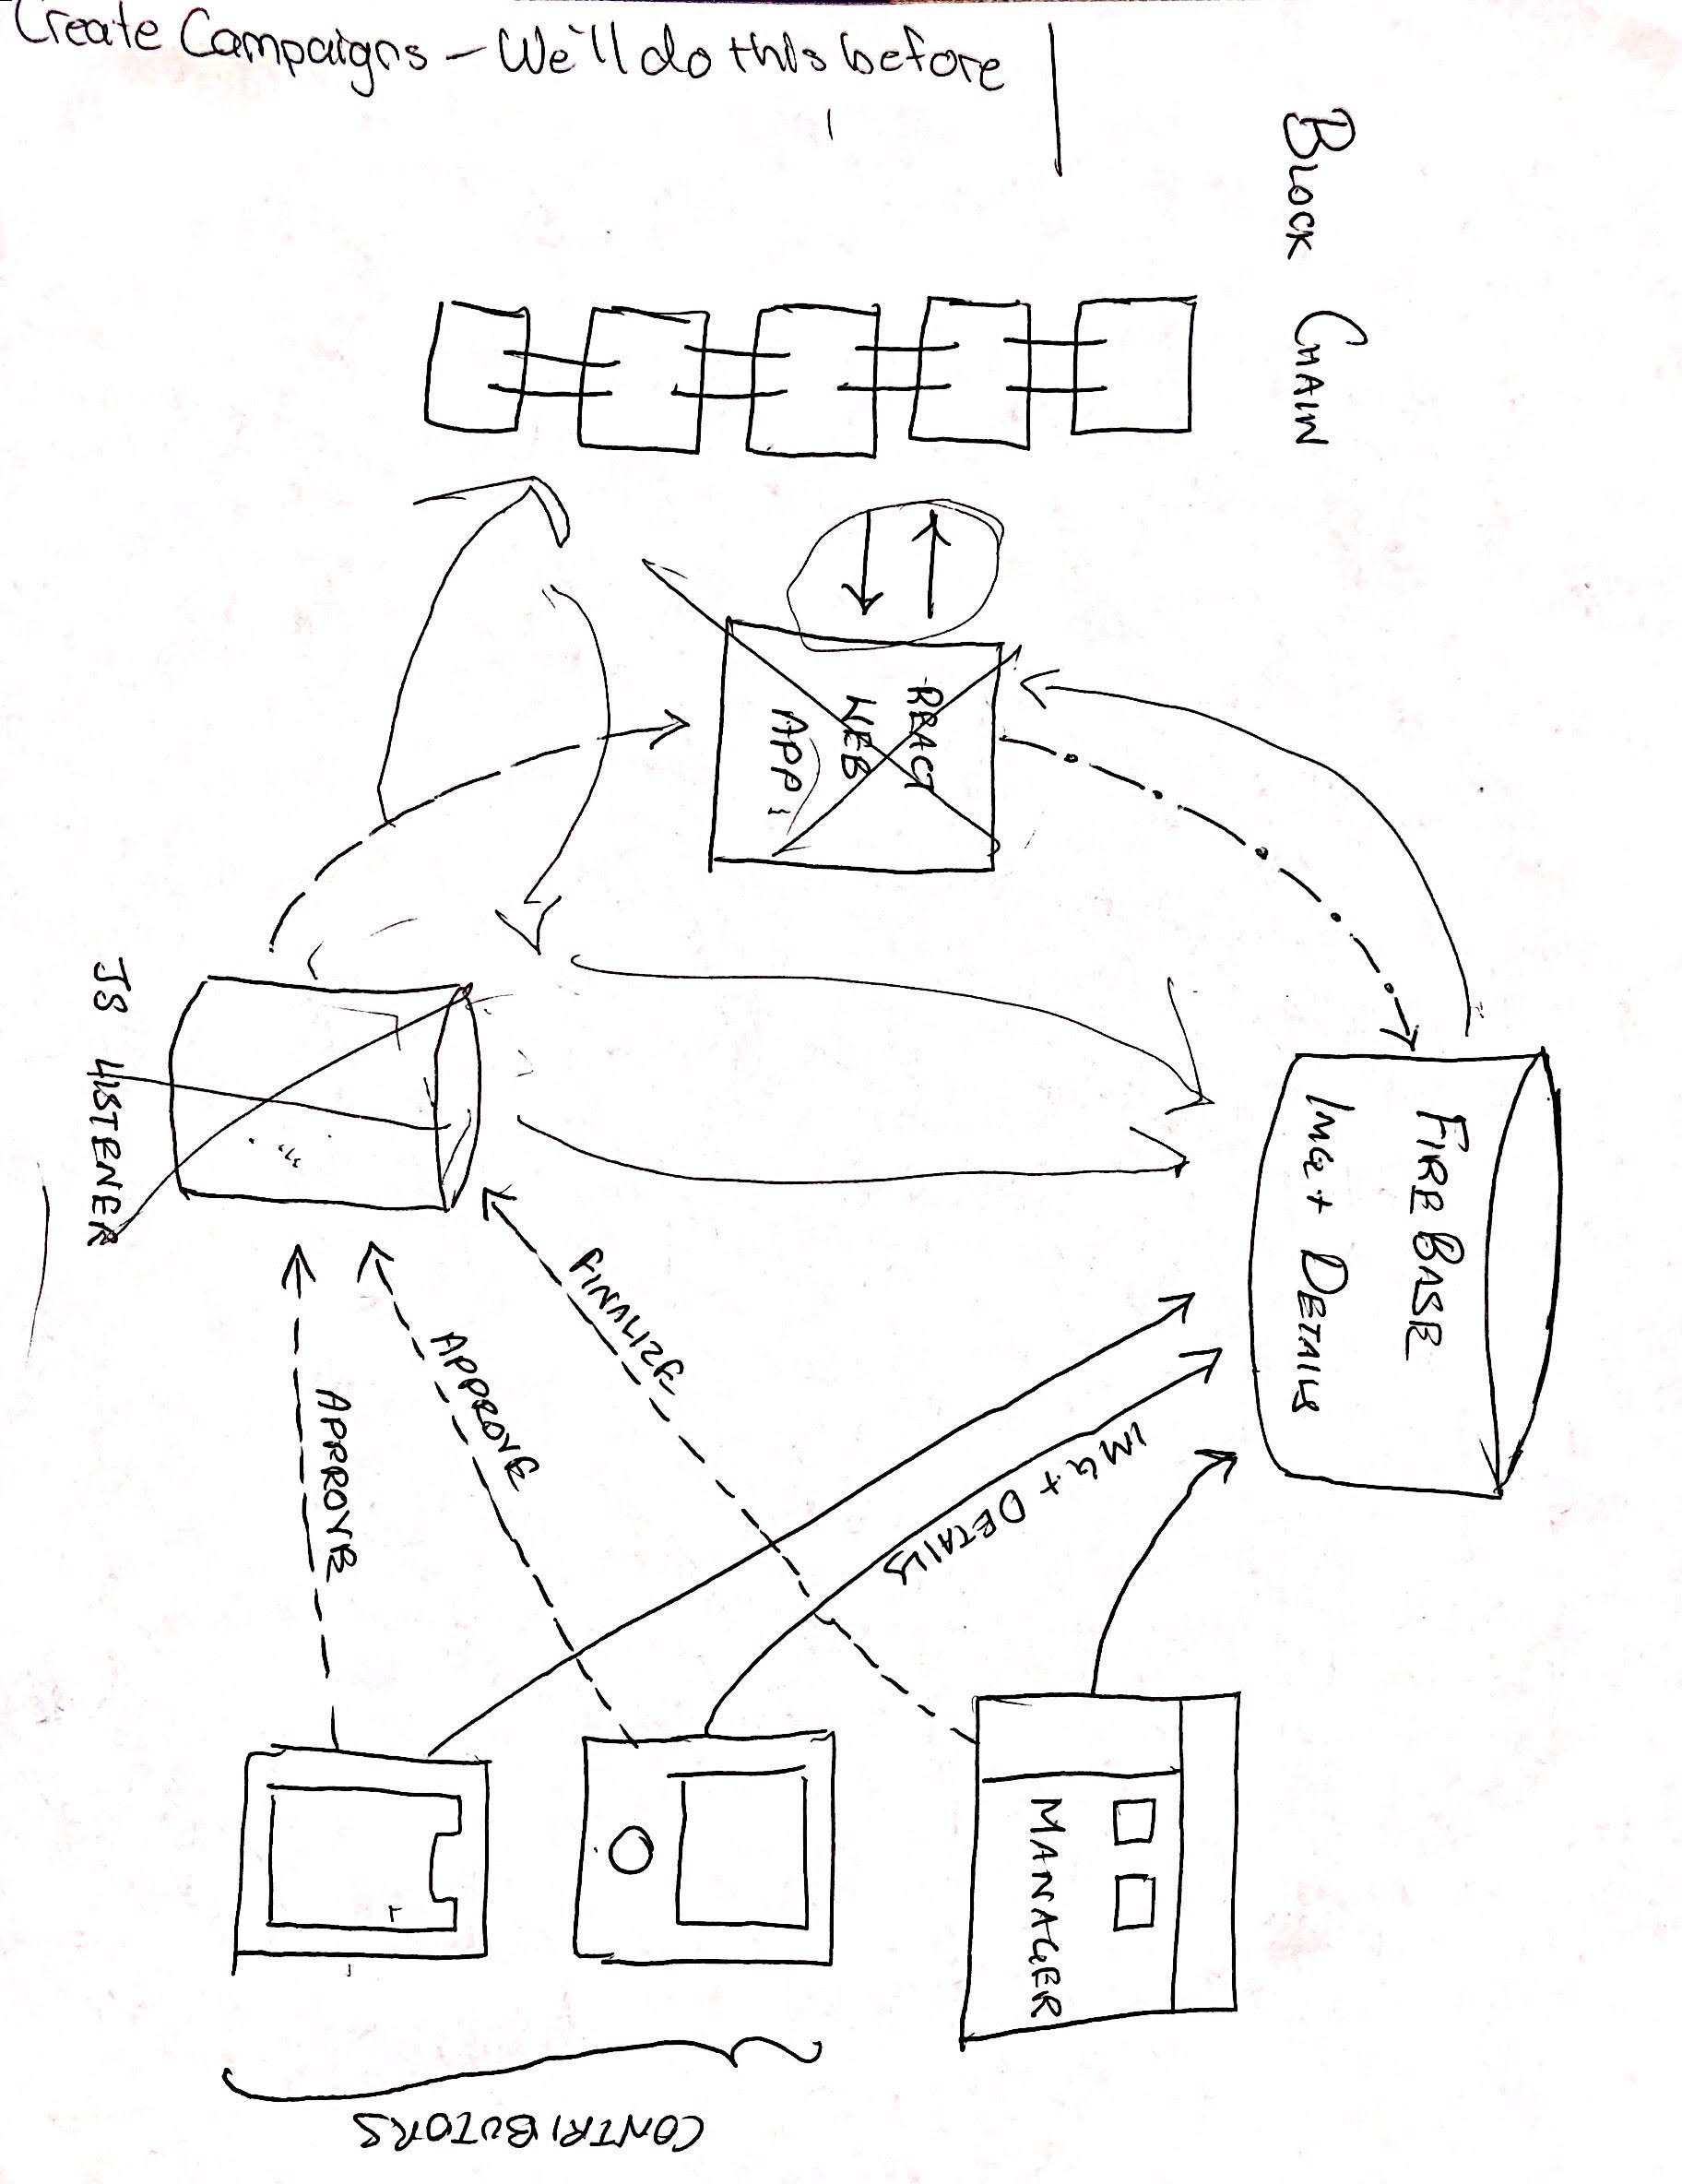 Create Campaigns - We'll do this before
BLOCK CHAIN
REACT
WEB
APP
FIREBASE
IMG + DETAILS
JS LISTENER
FINALIZE
APPROVE
APPROVE
IMG + DETAILS
MANAGER
CONTRIBUTORS